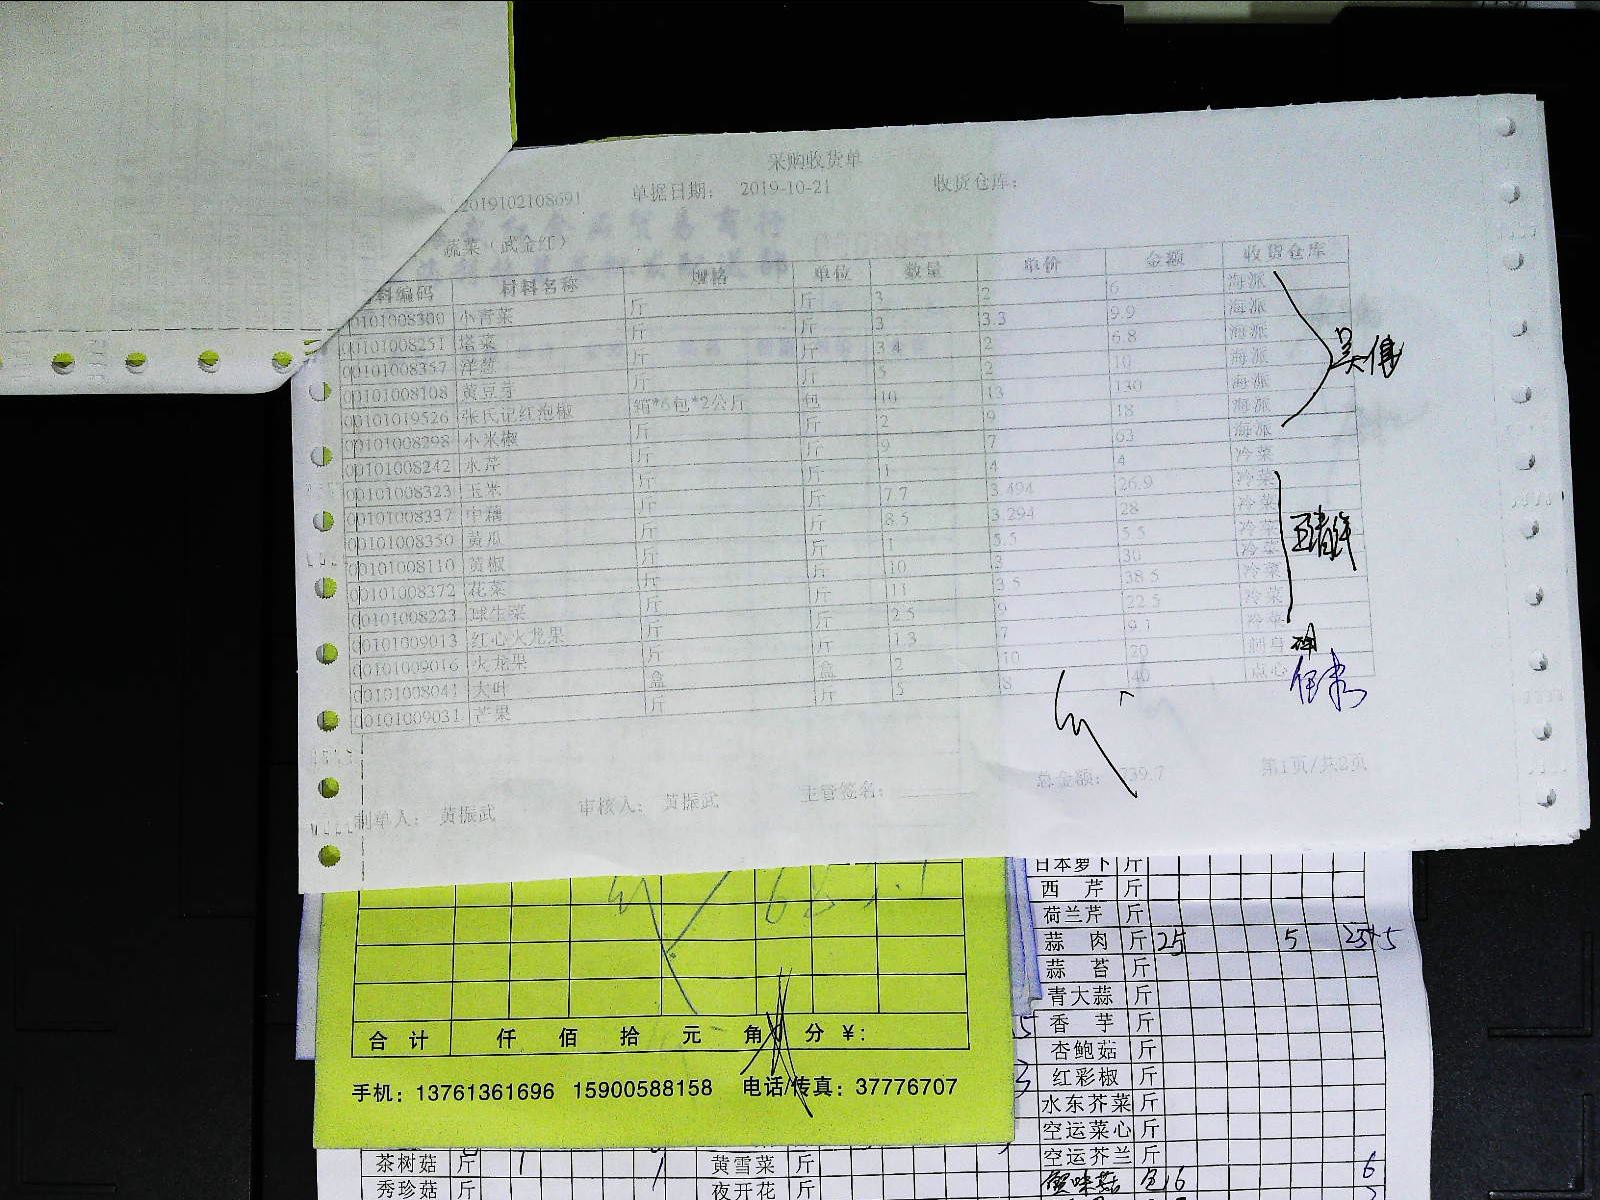 采购收货单
2019102108691 单据日期： 2019-10-21 收货仓库：
蔬菜（武金红）
料编码 材料名称 规格 单位 数量 单价 金额 收货仓库
00101008300 小青菜 斤 斤 3 2 6 海派
00101008251 塔菜 斤 斤 3 3.3 9.9 海派
00101008357 洋葱 斤 斤 3.4 2 6.8 海派
00101008108 黄豆芽 斤 斤 5 2 10 海派
00101019526 张氏记红泡椒 箱*6包*2公斤 包 10 13 130 海派
00101008298 小米椒 斤 斤 2 9 18 海派
00101008242 水芹 斤 斤 9 7 63 海派
00101008323 玉米 斤 斤 1 4 4 冷菜
00101008337 中藕 斤 斤 7.7 3.494 26.9 冷菜
00101008350 黄瓜 斤 斤 8.5 3.294 28 冷菜
00101008110 黄椒 斤 斤 1 5.5 5.5 冷菜
00101008372 花菜 斤 斤 10 3 30 冷菜
00101008223 球生菜 斤 斤 11 3.5 38.5 冷菜
00101009013 红心火龙果 斤 斤 2.5 9 22.5 冷菜
00101009016 火龙果 斤 斤 1.3 7 9.1 冷菜
00101008041 大叶 盒 盒 2 10 20 刺身
00101009031 芒果 斤 斤 5 8 40 点心
制单人： 黄振武 审核人： 黄振武 主管签名： 总金额： 739.7 第1页/共2页
合 计 仟 佰 拾 元 角 分 ￥：
手机：13761361696 15900588158 电话/传真：37776707
日本萝卜 斤
西 芹 斤
荷兰芹 斤
蒜 肉 斤 25 5
蒜 苔 斤
青大蒜 斤
香 芋 斤
杏鲍菇 斤
红彩椒 斤
水东芥菜 斤
空运菜心 斤
茶树菇 斤 1 1 黄雪菜 斤 空运芥兰 斤 6
秀珍菇 斤 夜开花 斤